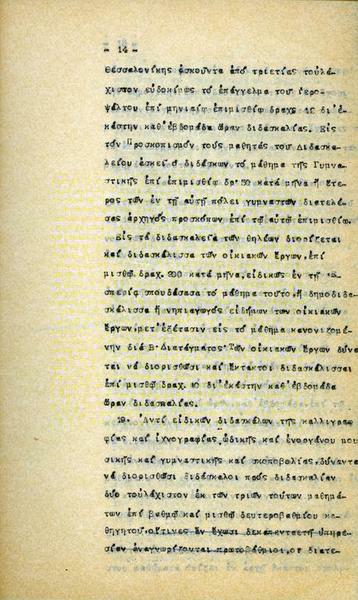 - 14 -
Θεσσαλονίκης ἀσκοῦντα ἀπό τριετίας τοὐλά-
χιστον εὐδοκίμως τό ἐπάγγελμα τοῦ ἱερο-
ψάλτου ἐπί μηνιαίῳ ἐπιμισθίῳ δραχ. 10 δι'ἑ-
κάστην καθ'ἑβδομάδα ὥραν διδασκαλίας. Εἰς
τόν Προσκοπισμόν τούς μαθητάς τοῦ Διδασκα-
λείου ἀσκεῖ ὁ διδάσκων τό μάθημα τῆς Γυμνα-
στικῆς ἐπί ἐπιμισθίῳ δρ. 50 κατά μῆνα ἤ ἕτε-
ρος τῶν ἐν τῇ αὐτῇ πόλει γυμναστῶν διατελέ-
σας ἀρχηγός προσκόπων ἐπί τῷ αὐτῷ ἐπιμισθίῳ.
Εἰς τά διδασκαλεῖα τῶν θηλέων διορίζεται
καί διδασκάλισσα τῶν οἰκιακῶν ἔργων, ἐπί
μισθῷ δραχ. 200 κατά μῆνα, εἰδικῶς ἐν τῇ
σπερίᾳ σπουδάσασα τό μάθημα τοῦτο, ἤ δημοδιδα-
σκάλισσα ἤ νηπιαγωγός εἰδήμων τῶν οἰκιακῶν
ἔργων, μετ'ἐξέτασιν εἰς τό μάθημα κανονιζομέ-
νην διά Β. Διατάγματος. Τῶν οἰκιακῶν ἔργων δύνα-
ται νά διορισθῶσι καί ἔκτακτοι διδασκάλισσαι
ἐπί μισθῷ δραχ. 10 δι'ἑκάστην καθ'ἑβδομάδα
ὥραν διδασκαλίας.
19. Ἀντί εἰδικῶν διδασκάλων τῆς καλλιγρα-
φίας καί ἰχνογραφίας, ᾠδικῆς καί ἐνοργάνου μου-
σικῆς καί γυμναστικῆς καί σκοποβολίας, δύνανται
νά διορισθῶσι διδάσκαλοι πρός διδασκαλίαν
δύο τοὐλάχιστον ἐκ τῶν τριῶν τούτων μαθημά-
των ἐπί βαθμῷ καί μισθῷ δευτεροβαθμίου κα-
θηγητοῦ, οἵτινες ἄν ἔχωσι δεκαπενταετῆ ὑπηρε-
σίαν ἀναγνωρίζονται πρωτοβάθμιοι, οἱ διατε-